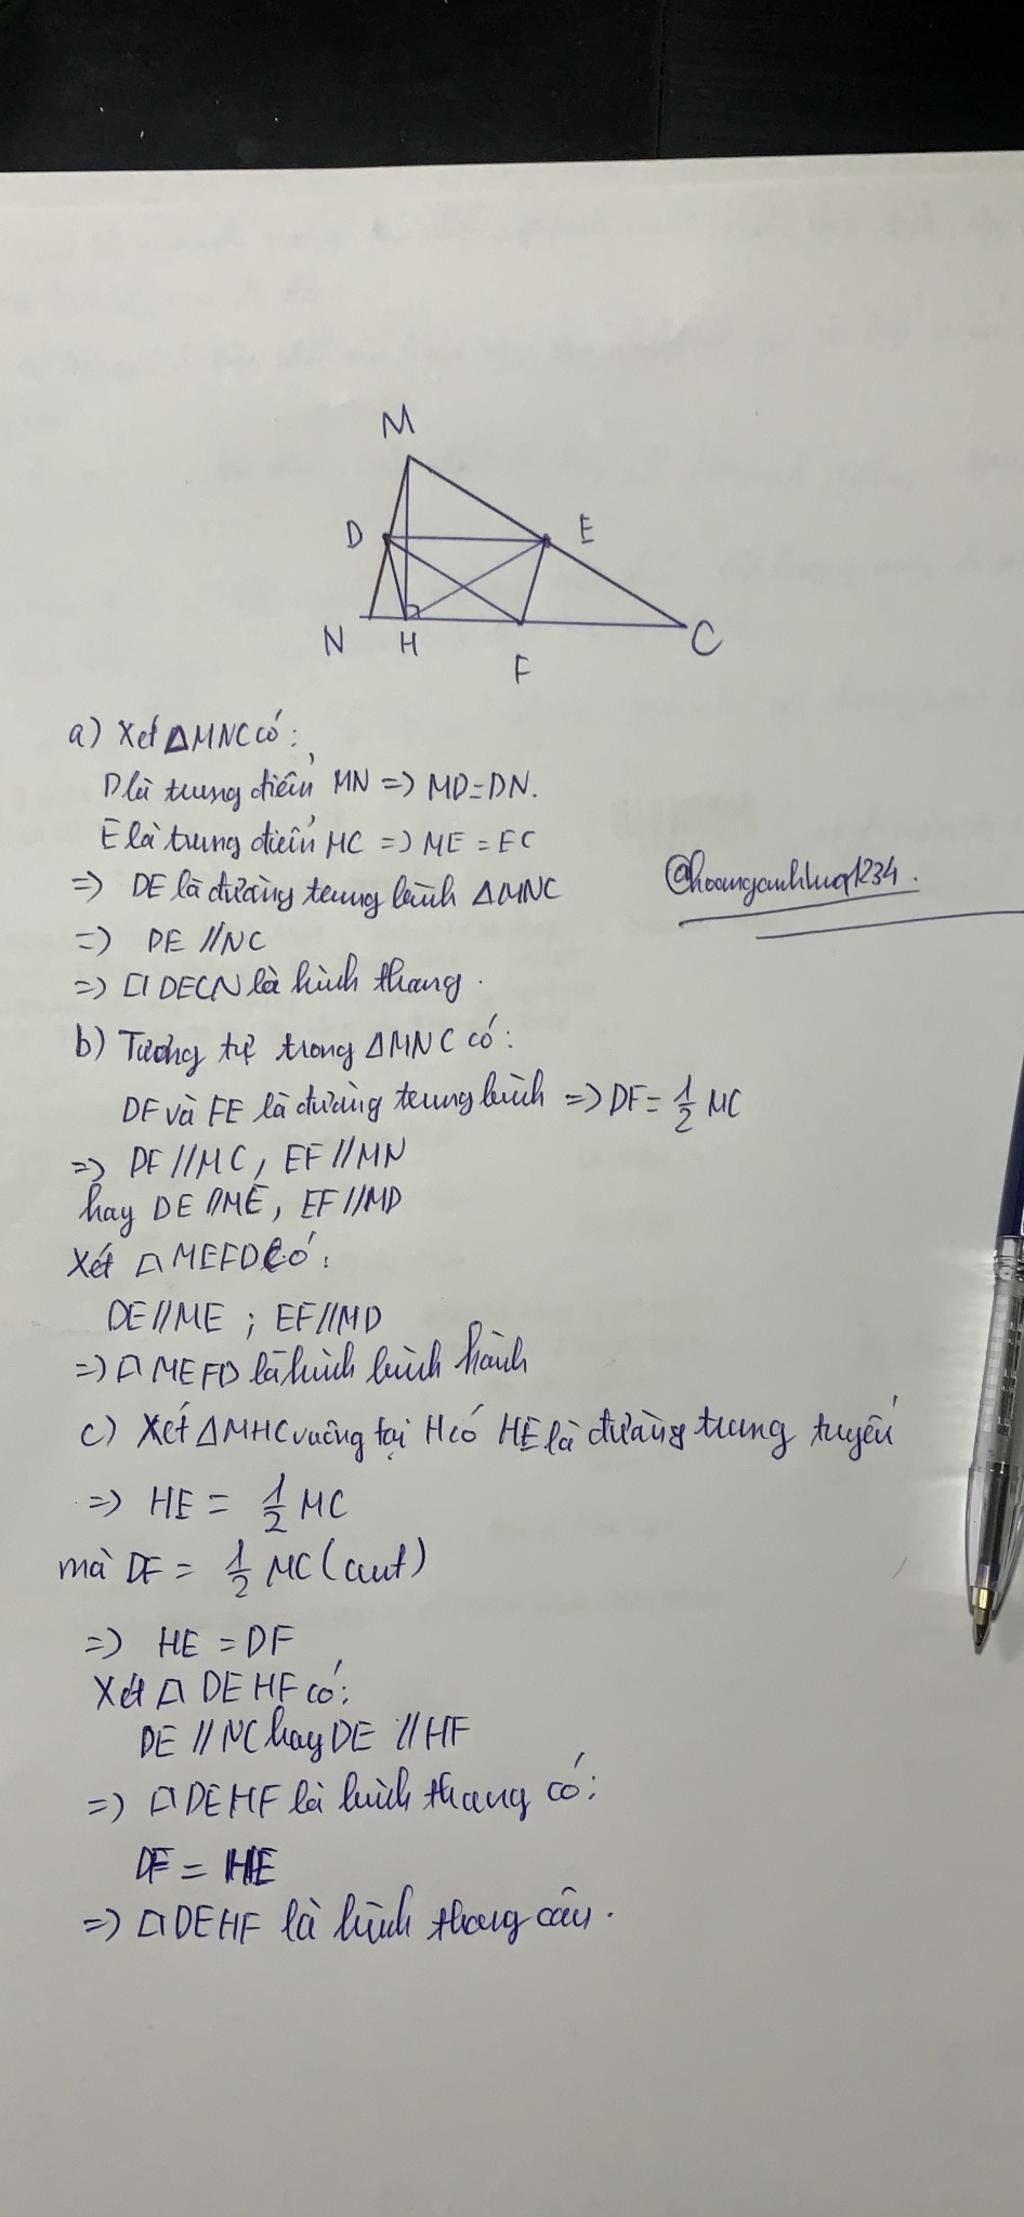 M
D
E
N
H
F
C
a) Xét ΔMNC có:
D là trung điểm MN => MD=DN.
E là trung điểm MC => ME = EC
=> DE là đường trung bình ΔMNC
@hoanganhluq1234.
=> DE // NC
=> □ DECN là hình thang.
b) Tương tự trong ΔMNC có:
DF và FE là đường trung bình => DF = 1/2 MC
=> DF // MC, EF // MN
hay DE // ME, EF // MD
Xét □ MEFD có:
DE // ME ; EF // MD
=> □ MEFD là hình bình hành
c) Xét ΔMHC vuông tại H có HE là đường trung tuyến
=> HE = 1/2 MC
mà DF = 1/2 MC (cmt)
=> HE = DF
Xét □ DEHF có:
DE // NC hay DE // HF
=> □ DEHF là hình thang có:
DF = HE
=> □ DEHF là hình thang cân.